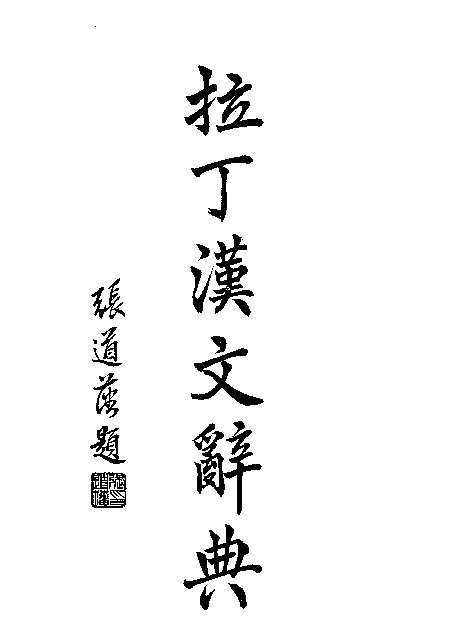 拉丁漢文辭典
張道藩題